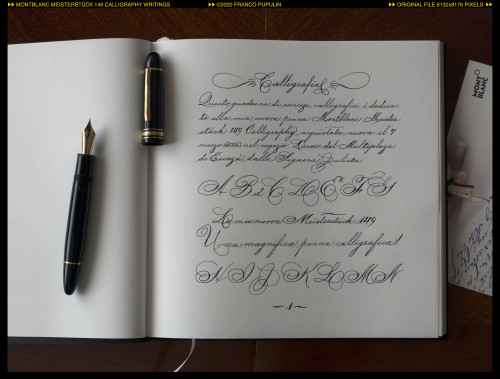 MONTBLANC MEISTERSTÜCK 149 CALLIGRAPHY WRITINGS
©2020 FRANCO PUPULIN
ORIGINAL FILE 8132x8176 PIXELS
Calligrafia
Questo quaderno di esercizi calligrafici è dedica-
to alla mia nuova penna Montblanc Meister-
stück 149 Calligraphy, acquistata nuova il 7
marzo 2020 nel negozio del Multiplaza
di Escazú dalla Signora
A B d C D E F G
La mia nuova Meisterstück 149
Una magnifica penna calligrafica!
H I J K L M N
~ 1 ~
MONT
BLANC